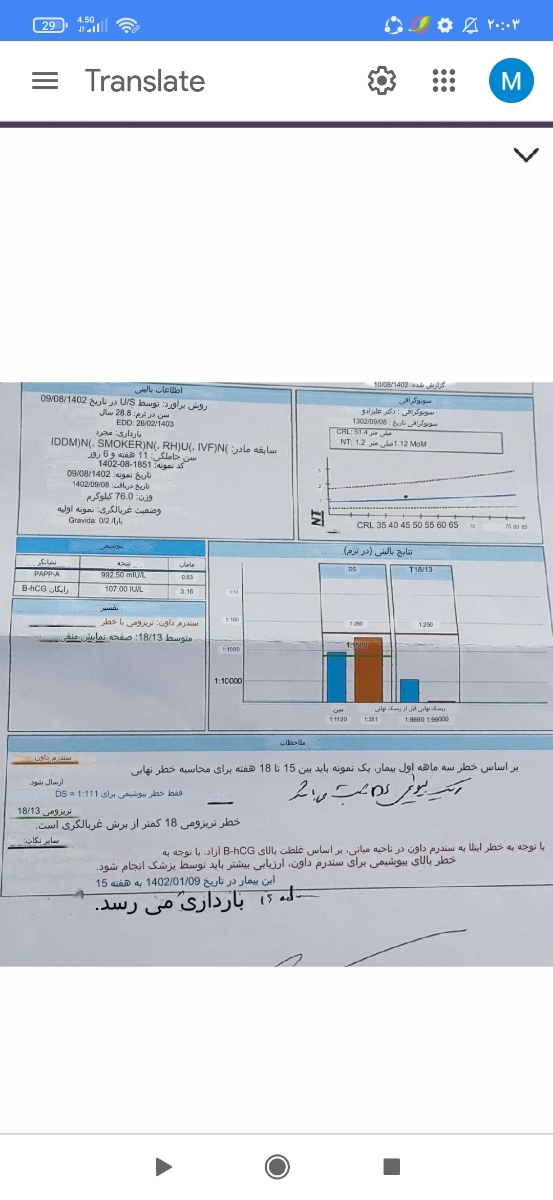 29
4.5G
۲۰:۰۳
Translate
M
گزارش شده: 10/08/1402
اطلاعات بالینی
روش برآورد: توسط U/S در تاریخ 09/08/1402
سن در ترم: 28.8 سال
EDD: 26/02/1403
بارداری: مجرد
سابقه مادر: IDDM)N(. SMOKER)N(. RH)U(. IVF)N(
سن حاملگی: 11 هفته و 6 روز
کد نمونه: 1851-08-1402
تاریخ نمونه: 09/08/1402
تاریخ دریافت: 1402/09/08
وزن: 76.0 کیلوگرم
وضعیت غربالگری: نمونه اولیه
Gravida: 0/2 پارا/
سونوگرافی
سونوگرافی: دکتر علیزادو
سونوگرافی تاریخ: 1302/09/08
CRL: 51.4 میلی متر
NT: 1.2 میلی متر 1.12 MoM
NT
CRL 35 40 45 50 55 60 65 70 75 80 85
بیوشیمی
نشانگر نتیجه مامان
PAPP-A 992.50 mIU/L 0.53
رایگان B-hCG 107.00 IU/L 3.16
تفسیر
سندرم داون: تریزومی با خطر
متوسط 18/13: صفحه نمایش منفی
نتایج بالینی (در ترم)
DS T18/13
1:10
1:100
1:1000
1:10000
1:250 1:250
1:1500
سن ریسک نهایی قبل از ریسک نهایی
1:1120 1:351 1:8690 1:99000
ملاحظات
سندرم داون
بر اساس خطر سه ماهه اول بیمار، یک نمونه باید بین 15 تا 18 هفته برای محاسبه خطر نهایی
ارسال شود
فقط خطر بیوشیمی برای DS = 1:111
تریزومی 18/13
خطر تریزومی 18 کمتر از برش غربالگری است.
سایر نکات:
با توجه به خطر ابتلا به سندرم داون در ناحیه میانی، بر اساس غلظت بالای B-hCG آزاد، با توجه به
خطر بالای بیوشیمی برای سندرم داون، ارزیابی بیشتر باید توسط پزشک انجام شود.
این بیمار در تاریخ 1402/01/09 به هفته 15
بارداری می رسد.